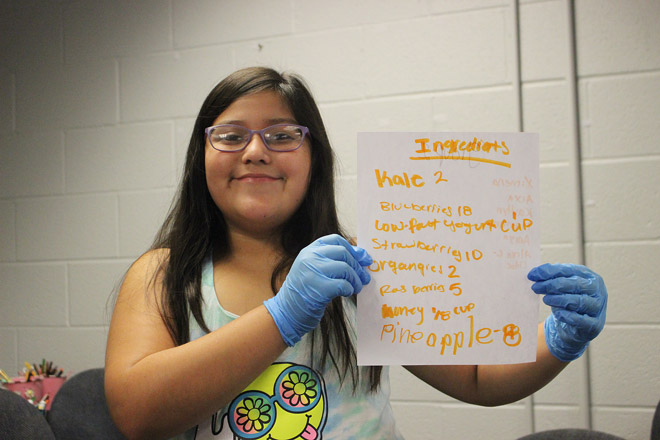 Ingredients
Kale 2
Blueberries 18
Low-Fat Yogurt 1 CUP
Strawberries 10
Organgies 2
Rasberris 5
honey 1/8 cup
Pineapple-8